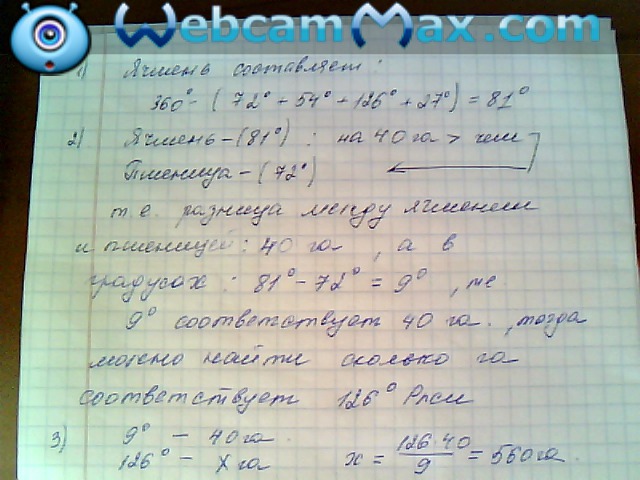 WebcamMax.com
1) Ячмень составляет:
360° - (72° + 54° + 126° + 27°) = 81°
2) Ячмень - (81°) : на 40 га > чем
Пшеница - (72°)
т.е. разница между ячменем
и пшеницей: 40 га , а в
градусах : 81° - 72° = 9° , т.е.
9° соответствует 40 га. , тогда
можно найти сколько га
соответствует 126° Ржи
3) 9° - 40 га
126° - х га x = 126·40/9 = 560 га.